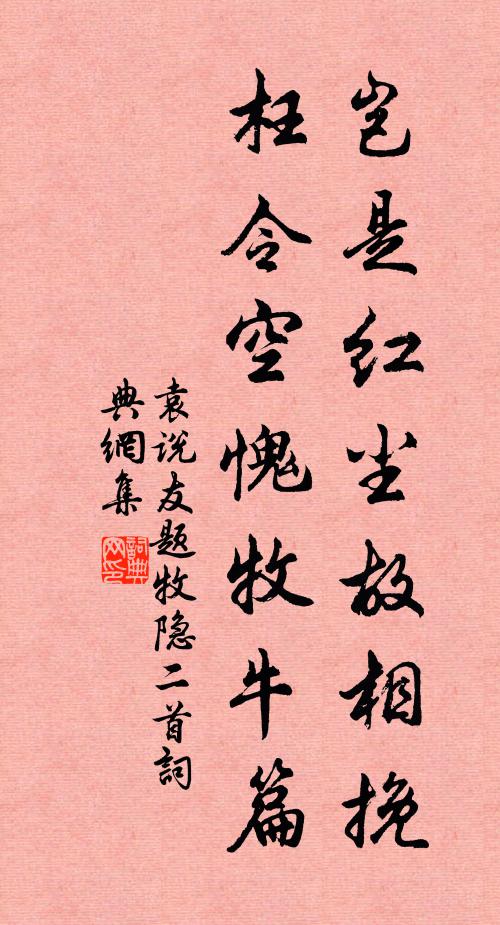 岂是红尘故相挽
枉令空愧牧牛篇
袁说友题牧隐二首詞
典網集
詞典网印